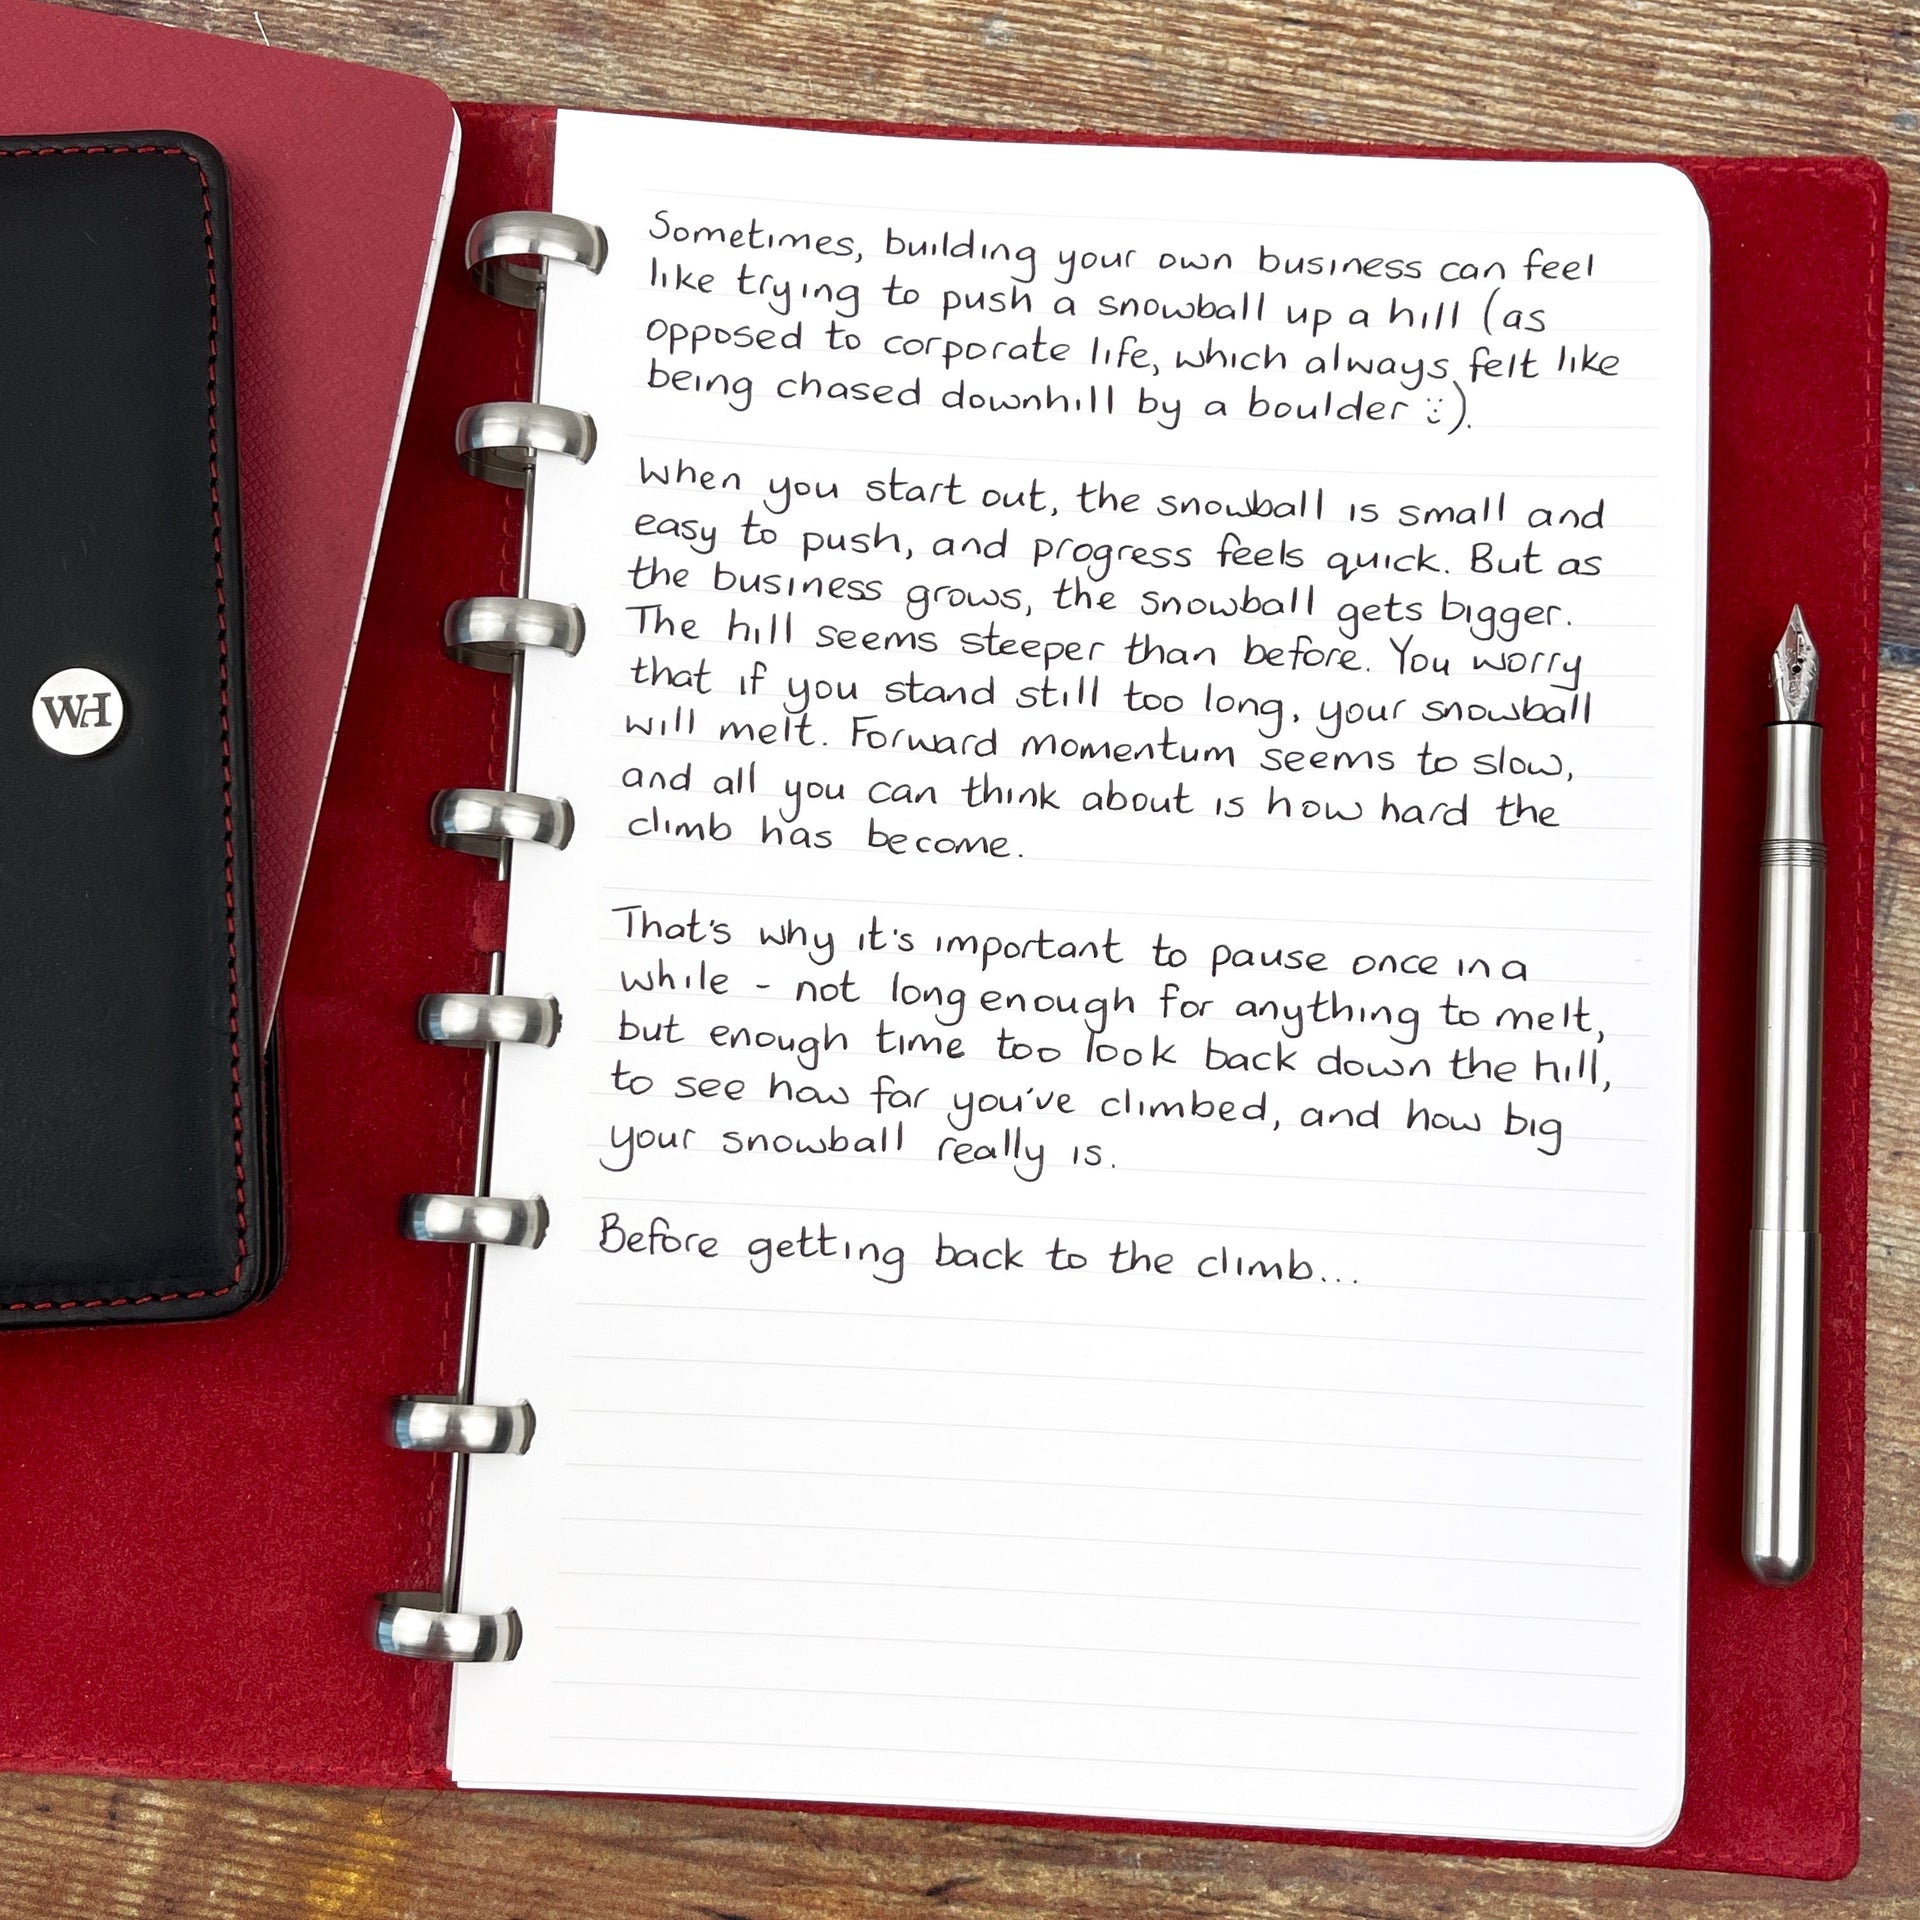 WH
Sometimes, building your own business can feel
like trying to push a snowball up a hill (as
opposed to corporate life, which always felt like
being chased downhill by a boulder :)).
When you start out, the snowball is small and
easy to push, and progress feels quick. But as
the business grows, the snowball gets bigger.
The hill seems steeper than before. You worry
that if you stand still too long, your snowball
will melt. Forward momentum seems to slow,
and all you can think about is how hard the
climb has become.
That's why it's important to pause once in a
while - not long enough for anything to melt,
but enough time too look back down the hill,
to see how far you've climbed, and how big
your snowball really is.
Before getting back to the climb...